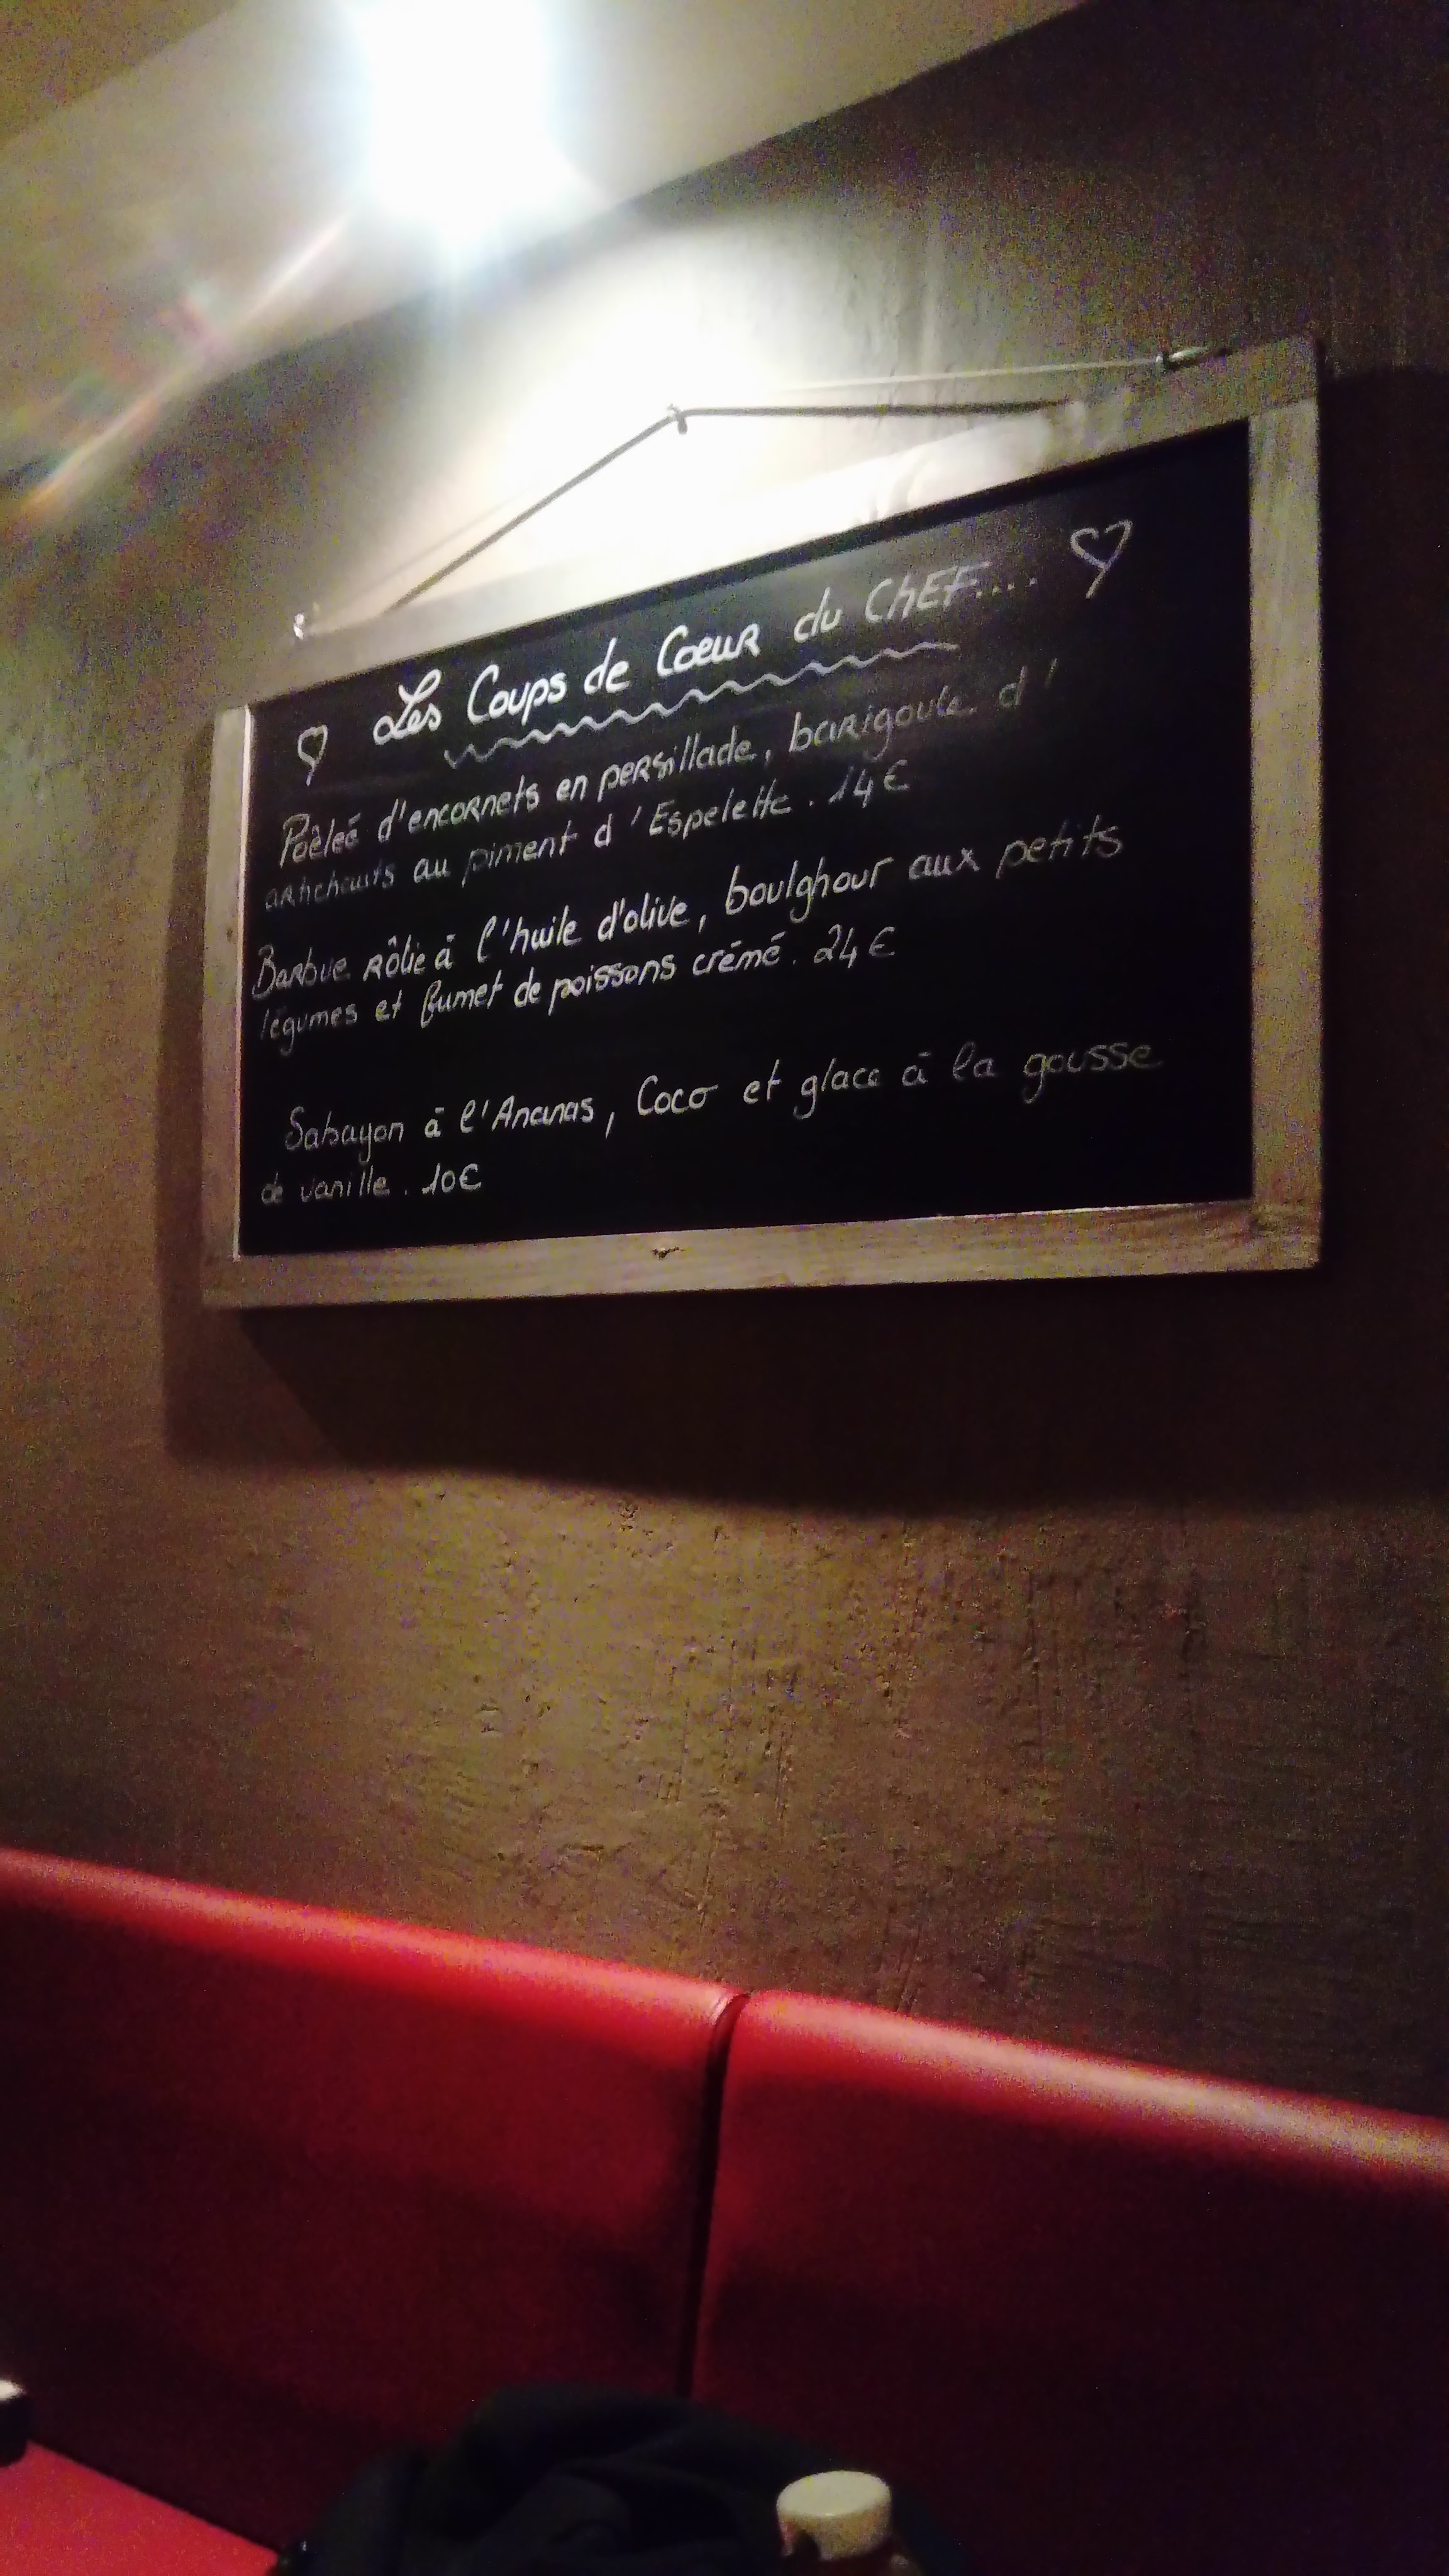 Les Coups de Cœur du ChEF....
Poêleé d'encornets en persillade, barigoule d'
artichauts au piment d'Espelette. 14€
Barbue rôtie à l'huile d'olive, boulghour aux petits
légumes et fumet de poissons crémé. 24€
Sabayon à l'Ananas, Coco et glace à la gousse
de vanille. 10€